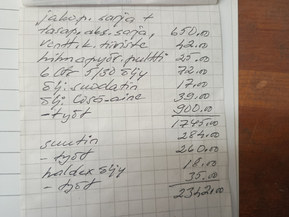 jakop. sarja +
tasap. aks. sarja, 650.00
venttk. tiiviste 42.00
hihnapyör. pultti 25.00
6 ltr 5/30 öljy 72.00
ölj. suodatin 17.00
ölj. lisä-aine 39.00
- työt 900.00
1745.00
suutin 284.00
- työt 260.00
haldex öljy 18.00
- työt 35.00
2342.00